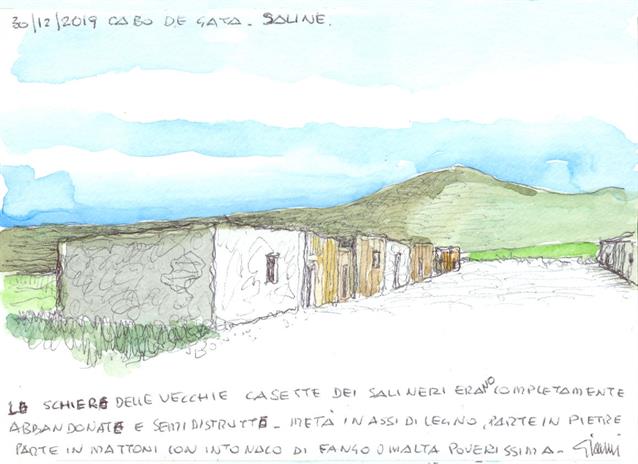 30/12/2019 CABO DE GATA - SALINE.
LE SCHIERE DELLE VECCHIE CASETTE DEI SALINERI ERANO COMPLETAMENTE
ABBANDONATE E SEMIDISTRUTTE - METÀ IN ASSI DI LEGNO, PARTE IN PIETRE
PARTE IN MATTONI CON INTONACO DI FANGO O MALTA POVERISSIMA - Gianni